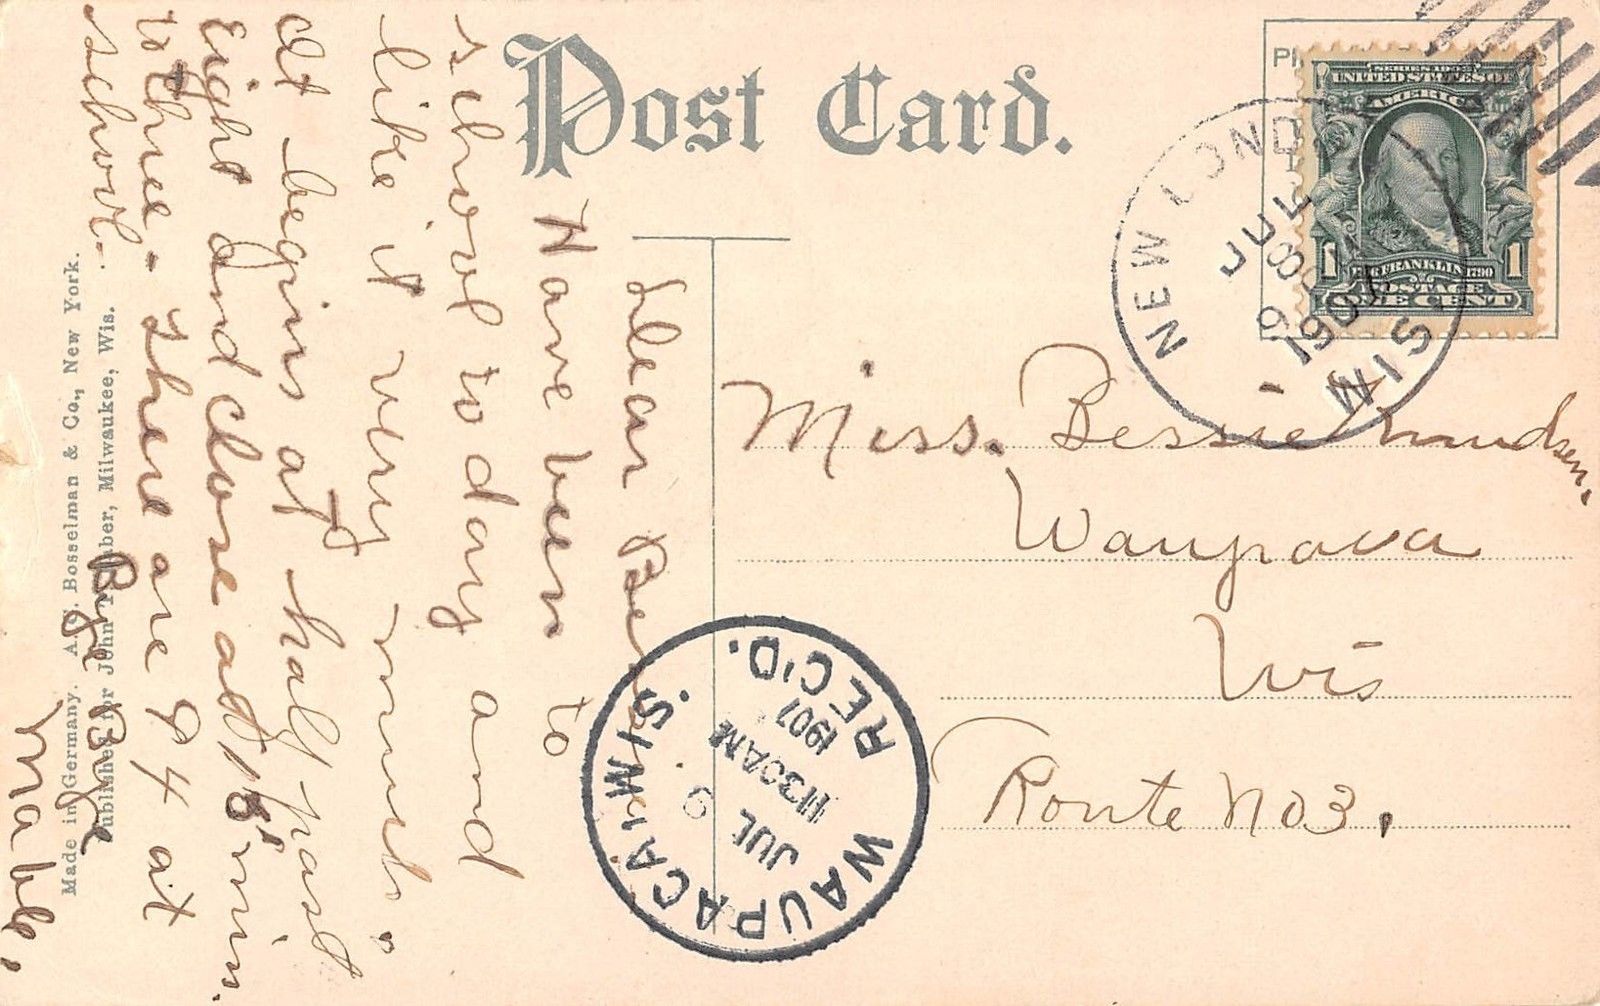 Post Card.
SERIES 1902
UNITED STATES OF
AMERICA
1 FRANKLIN 1790 1
POSTAGE
ONE CENT
NEW LOND
JUL
8
6
1907
WIS.
Miss. Bessie Knudsen.
Waupaca
Wis
Route No 3.
WAUPACA, WIS.
REC'D.
JUL 9
1130AM
1907
Dear Bessie.
Have been to
school to day and
like it very much.
It begins at half past
eight and close at 15 min.
to three. There are 94 at
school.
Bye Bye
Mable.
Made in Germany. A. C. Bosselman & Co., New York.
Published for John Milwaukee, Wis.